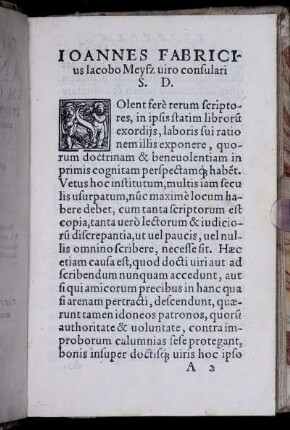 IOANNES FABRICI-
us Iacobo Meysz uiro consulari
S. D.
SOlent ferè rerum scripto-
res, in ipsis statim librorũ
exordijs, laboris sui ratio
nem illis exponere, quo-
rum doctrinam & beneuolentiam in
primis cognitam perspectamq́; habẽt.
Vetus hoc institutum, multis iam secu
lis usurpatum, nũc maximè locum ha-
bere debet, cum tanta scriptorum est
copia, tanta uerò lectorum & iudicio-
rũ discrepantia, ut uel paucis, uel nul-
lis omnino scribere, necesse sit. Hæc
etiam causa est, quod docti uiri aut ad
scribendum nunquam accedunt, aut
si qui amicorum precibus in hanc qua
si arenam pertracti, descendunt, quæ-
runt tamen idoneos patronos, quorũ
authoritate & uoluntate, contra im-
proborum calumnias sese protegant,
bonis insuper doctisq́; uiris hoc ipso
A 2